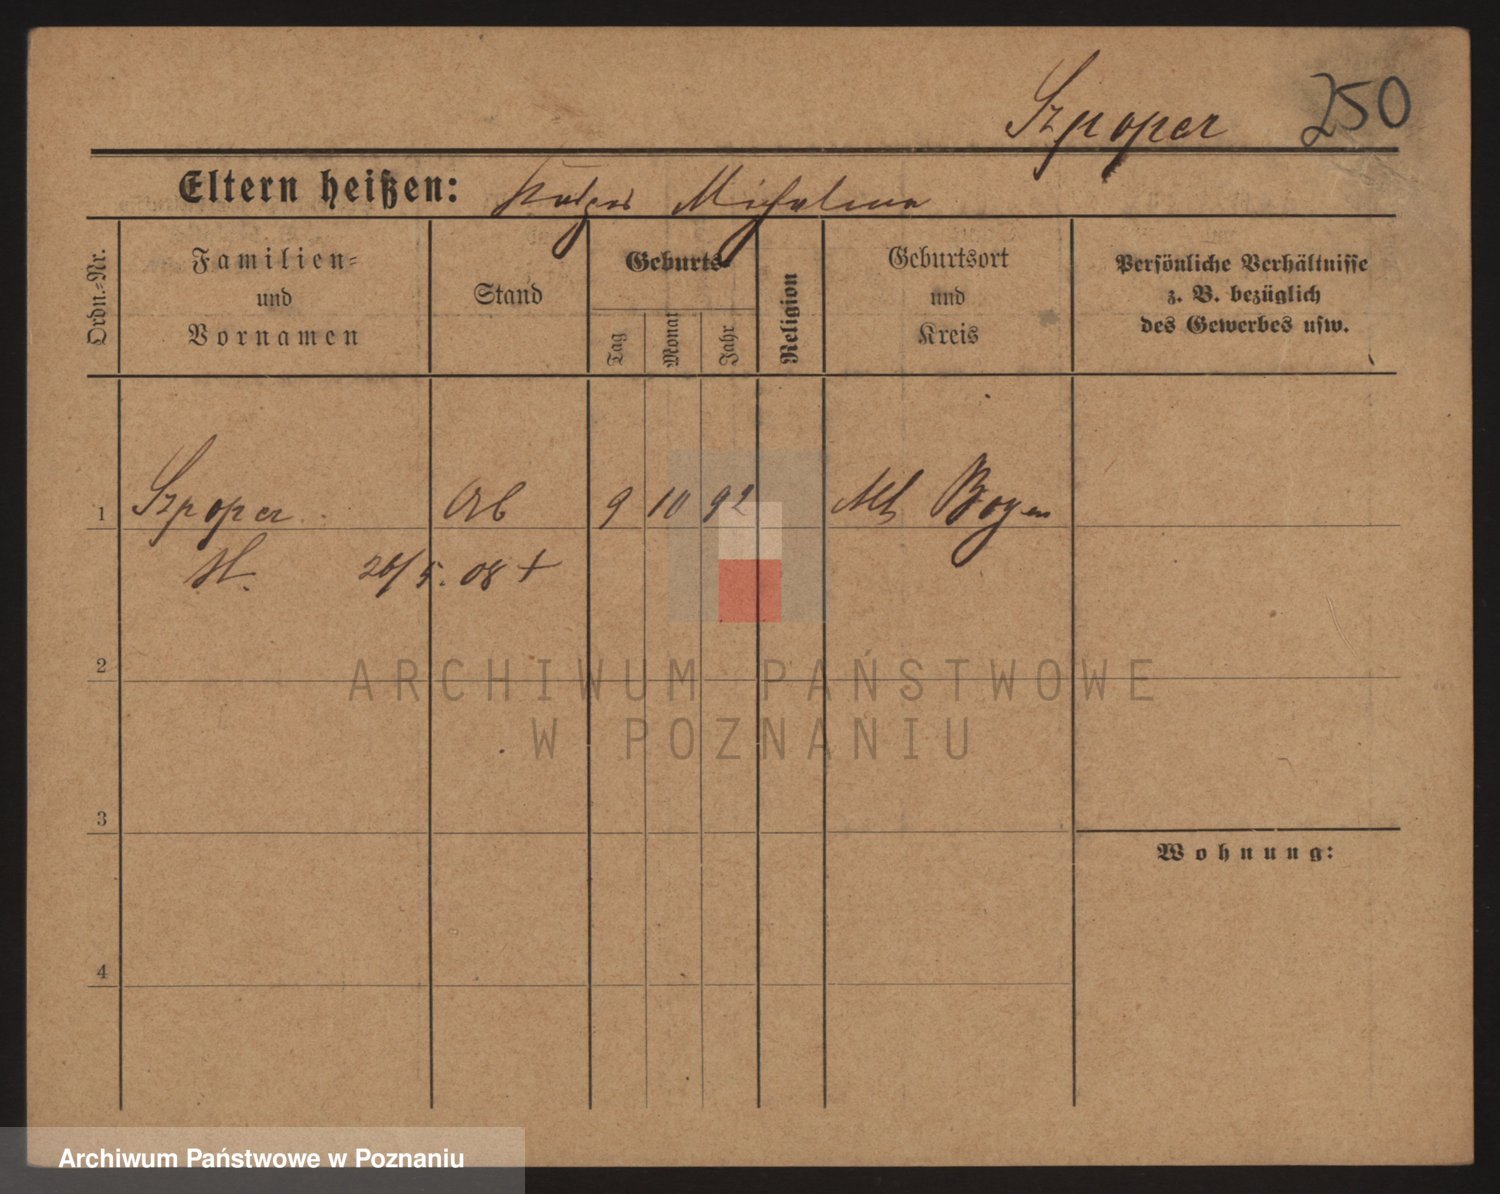 Szpoper 250
Eltern heißen: Michalina
Ordn.-Nr.
Familien-
und
Vornamen
Stand
Geburts-
Tag
Monat
Jahr
Religion
Geburtsort
und
Kreis
Persönliche Verhältnisse
z. B. bezüglich
des Gewerbes usw.
1 Szpoper Arb 9 10 92
St. 26/5. 08 +
2
ARCHIWUM PAŃSTWOWE
W POZNANIU
3
Wohnung:
4
Archiwum Państwowe w Poznaniu